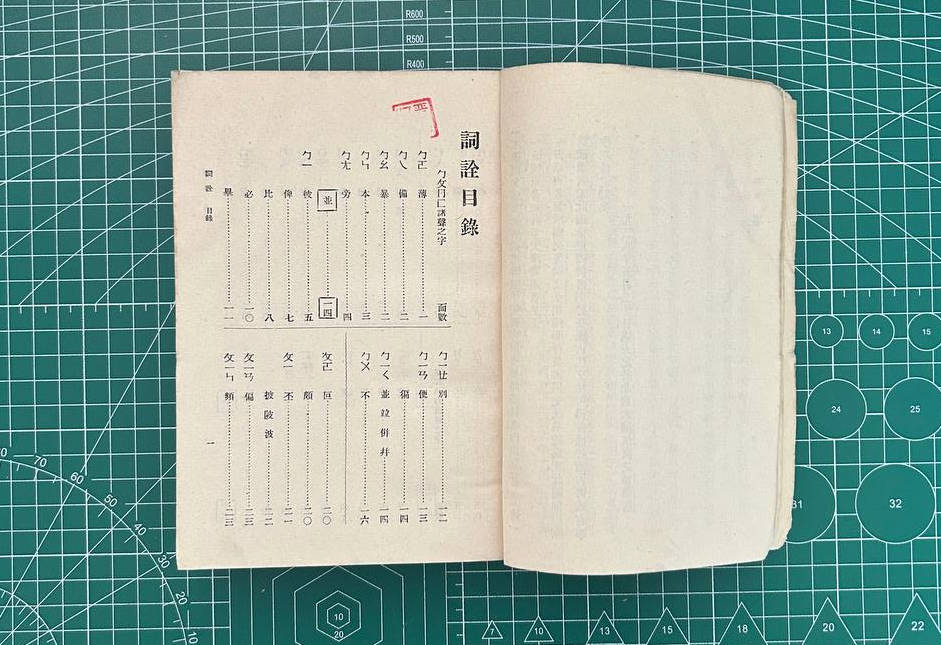 詞詮目錄
ㄅㄆㄇㄈ諸聲之字 面數
ㄅㄛ 薄 一
ㄅㄟ 備 二
ㄅㄠ 暴 二
ㄅㄣ 本 三
ㄅㄤ 旁 四
並 一四
ㄅㄧ 彼 五
俾 七
比 八
必 一〇
畢 一一
ㄅㄧㄝ 別 一二
ㄅㄧㄢ 便 一三
徧 一四
ㄅㄧㄥ 並 竝 併 幷 一四
ㄅㄨ 不 一六
ㄆㄛ 叵 二〇
頗 二〇
ㄆㄧ 丕 二一
披 陂 波 二二
ㄆㄧㄢ 偏 二三
ㄆㄧㄣ 頻 二三
詞詮 目錄
一
R600
R500
R400
13
14
15
24
25
31
32
70
60
50
40
30
20
10
10
20
7
10
13
15
18
20
22